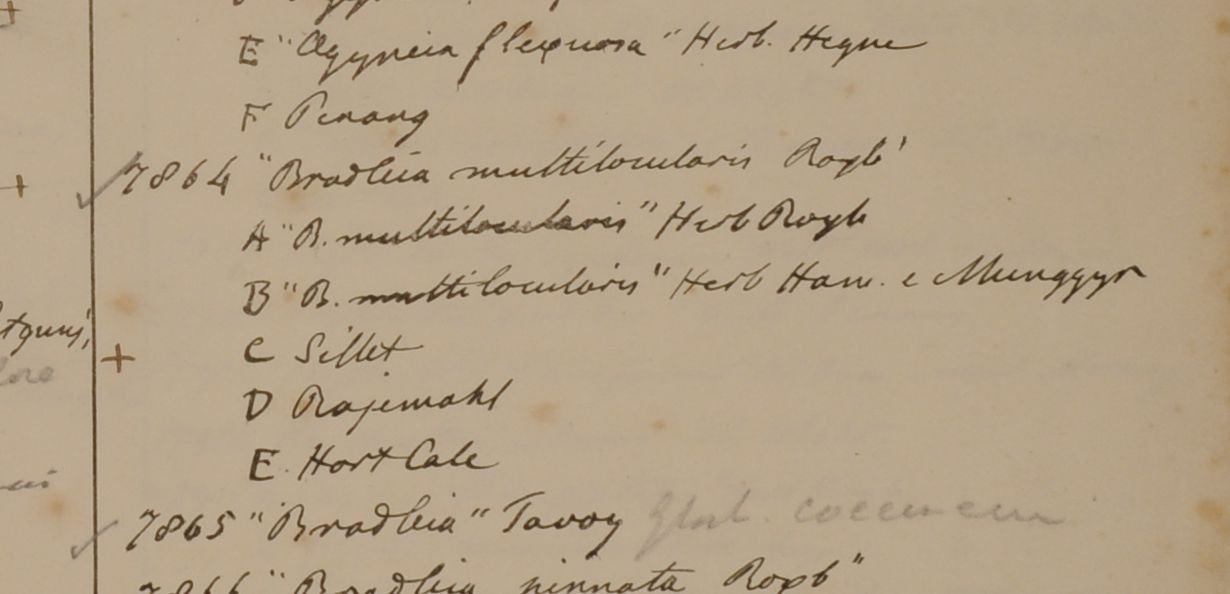 E "Ægyneia flexuosa" Herb. Heyne
F Penang
7864 "Bradleia multilocularis Roxb'
A "B. multilocularis" Herb Roxb
B "B. multilocularis" Herb Ham. e Mungger
C Sillet
D Rajemahl
E Hort Calc
7865 "Bradleia" Tavoy Gloch. coccineum
7866 "Bradleia pinnata Roxb"